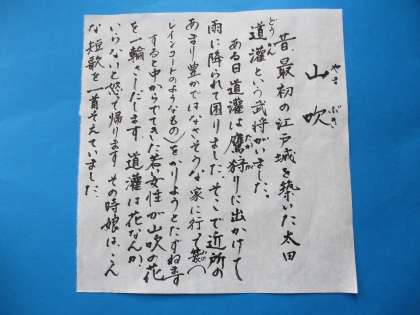 山吹
やま ぶき
昔、最初の江戸城を築いた太田
道灌という武将がいました。
どうかん
ある日道灌は鷹狩りに出かけて
たかが
雨に降られて困りました。そこで近所の
あまり豊かではなさそうな家に行って蓑(
レインコートのようなもの)をかりようとたずねます
すると中からでてきた若い女性が山吹の花
を一輪さしだします。道灌は花なんか
いらないと怒って帰ります。その時娘は、こん
な短歌を一首そえていました。